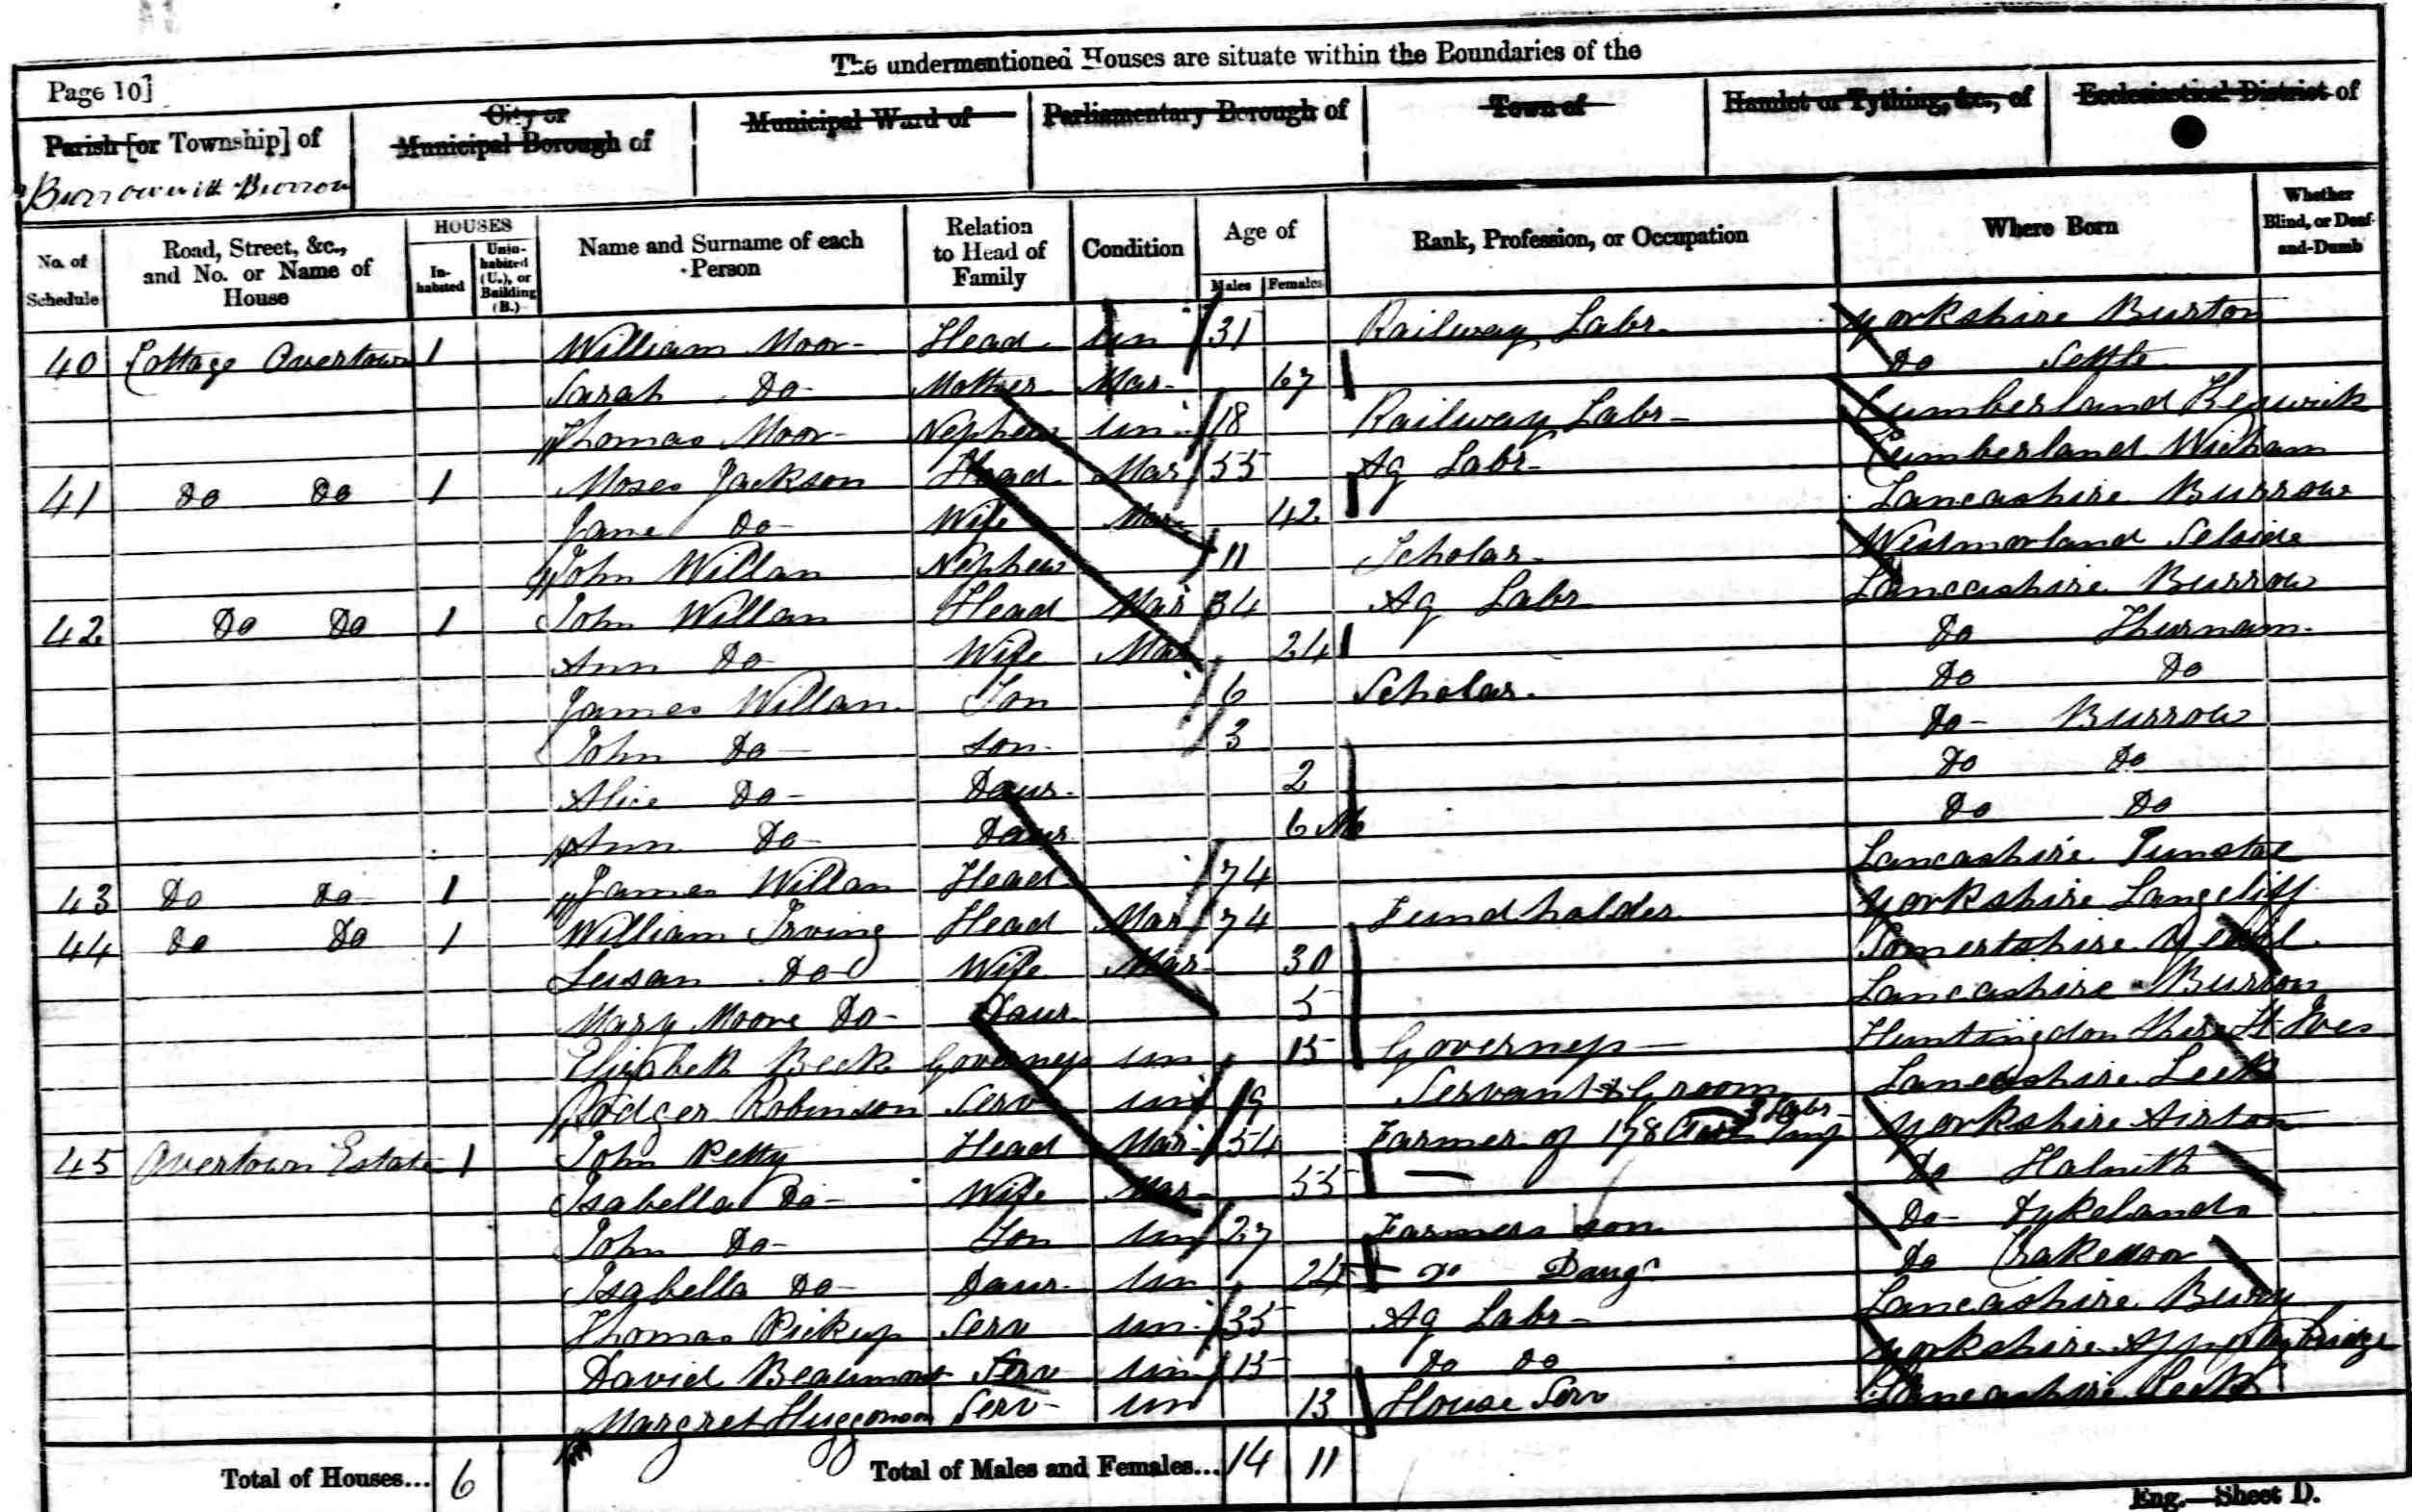 The undermentioned Houses are situate within the Boundaries of the
Page 10]
Parish [or Township] of
City or Municipal Borough of
Municipal Ward of
Parliamentary Borough of
Town of
Hamlet or Tything, &c., of
Ecclesiastical District of
Burrow with Burrow
No. of Schedule
Road, Street, &c., and No. or Name of House
HOUSES
In-habited
Unin-habited (U.), or Building (B.)
Name and Surname of each Person
Relation to Head of Family
Condition
Age of
Males
Females
Rank, Profession, or Occupation
Where Born
Whether Blind, or Deaf-and-Dumb
40 Cottage Overtown 1 William Moor Head Un 31 Railway Labr Yorkshire Burton
Sarah Do Mother Mar 67 Do Settle
Thomas Moor Nephew Un 18 Railway Labr Cumberland Keswick
41 Do Do 1 Moses Jackson Head Mar 55 Ag Labr Cumberland Wicham
Jane Do Wife Mar 42 Lancashire Burrow
John Willan Nephew 11 Scholar Westmorland Selside
42 Do Do 1 John Willan Head Mar 34 Ag Labr Lancashire Burrow
Ann Do Wife Mar 24 Do Thurnam
James Willan Son 6 Scholar Do Do
John Do Son 3 Do Burrow
Alice Do Daur 2 Do Do
Ann Do Daur 6 M Do Do
43 Do Do 1 James Willan Head 74 Lancashire Tunstal
44 Do Do 1 William Irving Head Mar 74 Fundholder Yorkshire Langcliff
Susan Do Wife Mar 30 Somertshire Yeovil
Mary Moore Do Daur 5 Lancashire Burrow
Elizabeth Beck Governess Un 15 Governess Huntingdon Shire St Ives
Rodger Robinson Serv Un 19 Servant & Groom Lancashire Leck
45 Overtown Estate 1 John Petty Head Mar 54 Farmer of 178 Acres 3 Labr Yorkshire Airton
Isabella Do Wife Mar 55 Do
John Do Son Un 27 Farmers son Do Dykelands
Isabella Do Daur Un 24 Do Daugr Do
Thomas Pickup Serv Un 35 Ag Labr Lancashire Bury
David Beaumont Serv Un 15 Do Do Yorkshire
Margret Huggonson Serv Un 13 House Serv Lancashire Leck
Total of Houses... 6
Total of Males and Females... 14 11
Eng.—Sheet D.